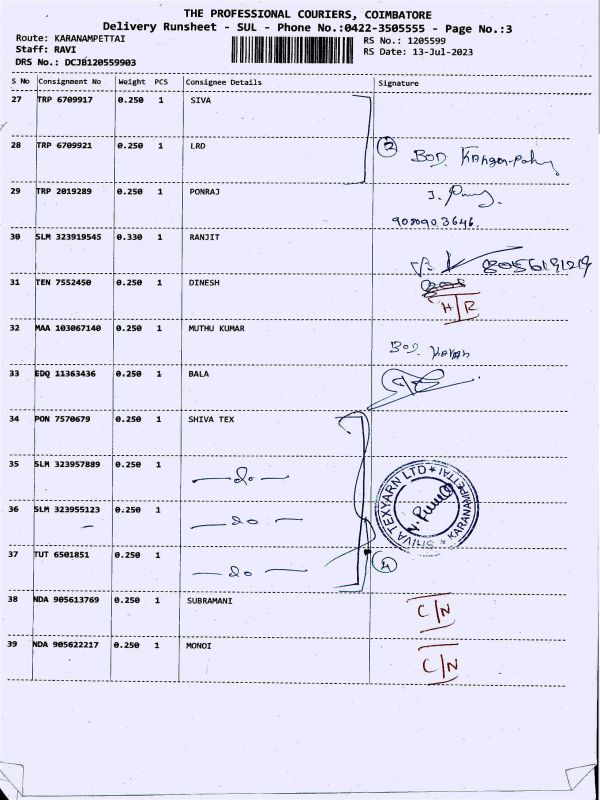 THE PROFESSIONAL COURIERS, COIMBATORE
Delivery Runsheet - SUL - Phone No.:0422-3505555 - Page No.:3
Route: KARANAMPETTAI
RS No.: 1205599
Staff: RAVI
RS Date: 13-Jul-2023
DRS No.: DCJB120559903
S No Consignment No Weight PCS Consignee Details Signature
27 TRP 6709917 0.250 1 SIVA
28 TRP 6709921 0.250 1 LRD 2
BOD.
29 TRP 2019289 0.250 1 PONRAJ
909090 3646.
30 SLM 323919545 0.330 1 RANJIT
8056191219
31 TEN 7552450 0.250 1 DINESH
H/R
32 MAA 103067140 0.250 1 MUTHU KUMAR
BOD.
33 EDQ 11363436 0.250 1 BALA
34 PON 7570679 0.250 1 SHIVA TEX
35 SLM 323957889 0.250 1 — do —
SHIVA TEXYARN LTD ★ KARANAMPETTAI ★
36 SLM 323955123 0.250 1 — do —
37 TUT 6501851 0.250 1 — do — 4
38 NDA 905613769 0.250 1 SUBRAMANI C/N
39 NDA 905622217 0.250 1 MONOI C/N